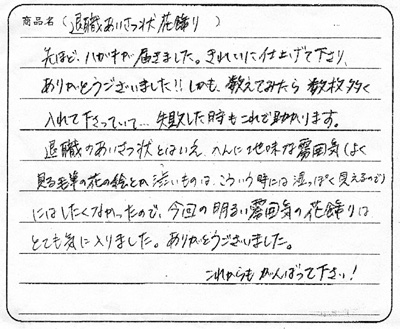 商品名(退職あいさつ状 花飾り)
先ほど、ハガキが届きました。きれいに仕上げて下り、
ありがとうございました!! しかも、数えてみたら 数枚多く
入れて下さっていて… 失敗した時もこれで助かります。
退職のあいさつ状とはいえ へんに地味な雰囲気(よく
見る毛筆の花の絵とか 渋いものは、こういう時には湿っぽく見えるので)
にはしたくなかったので、今回の明るい雰囲気の花飾りは
とても気に入りました。ありがとうございました。
これからもがんばって下さい!